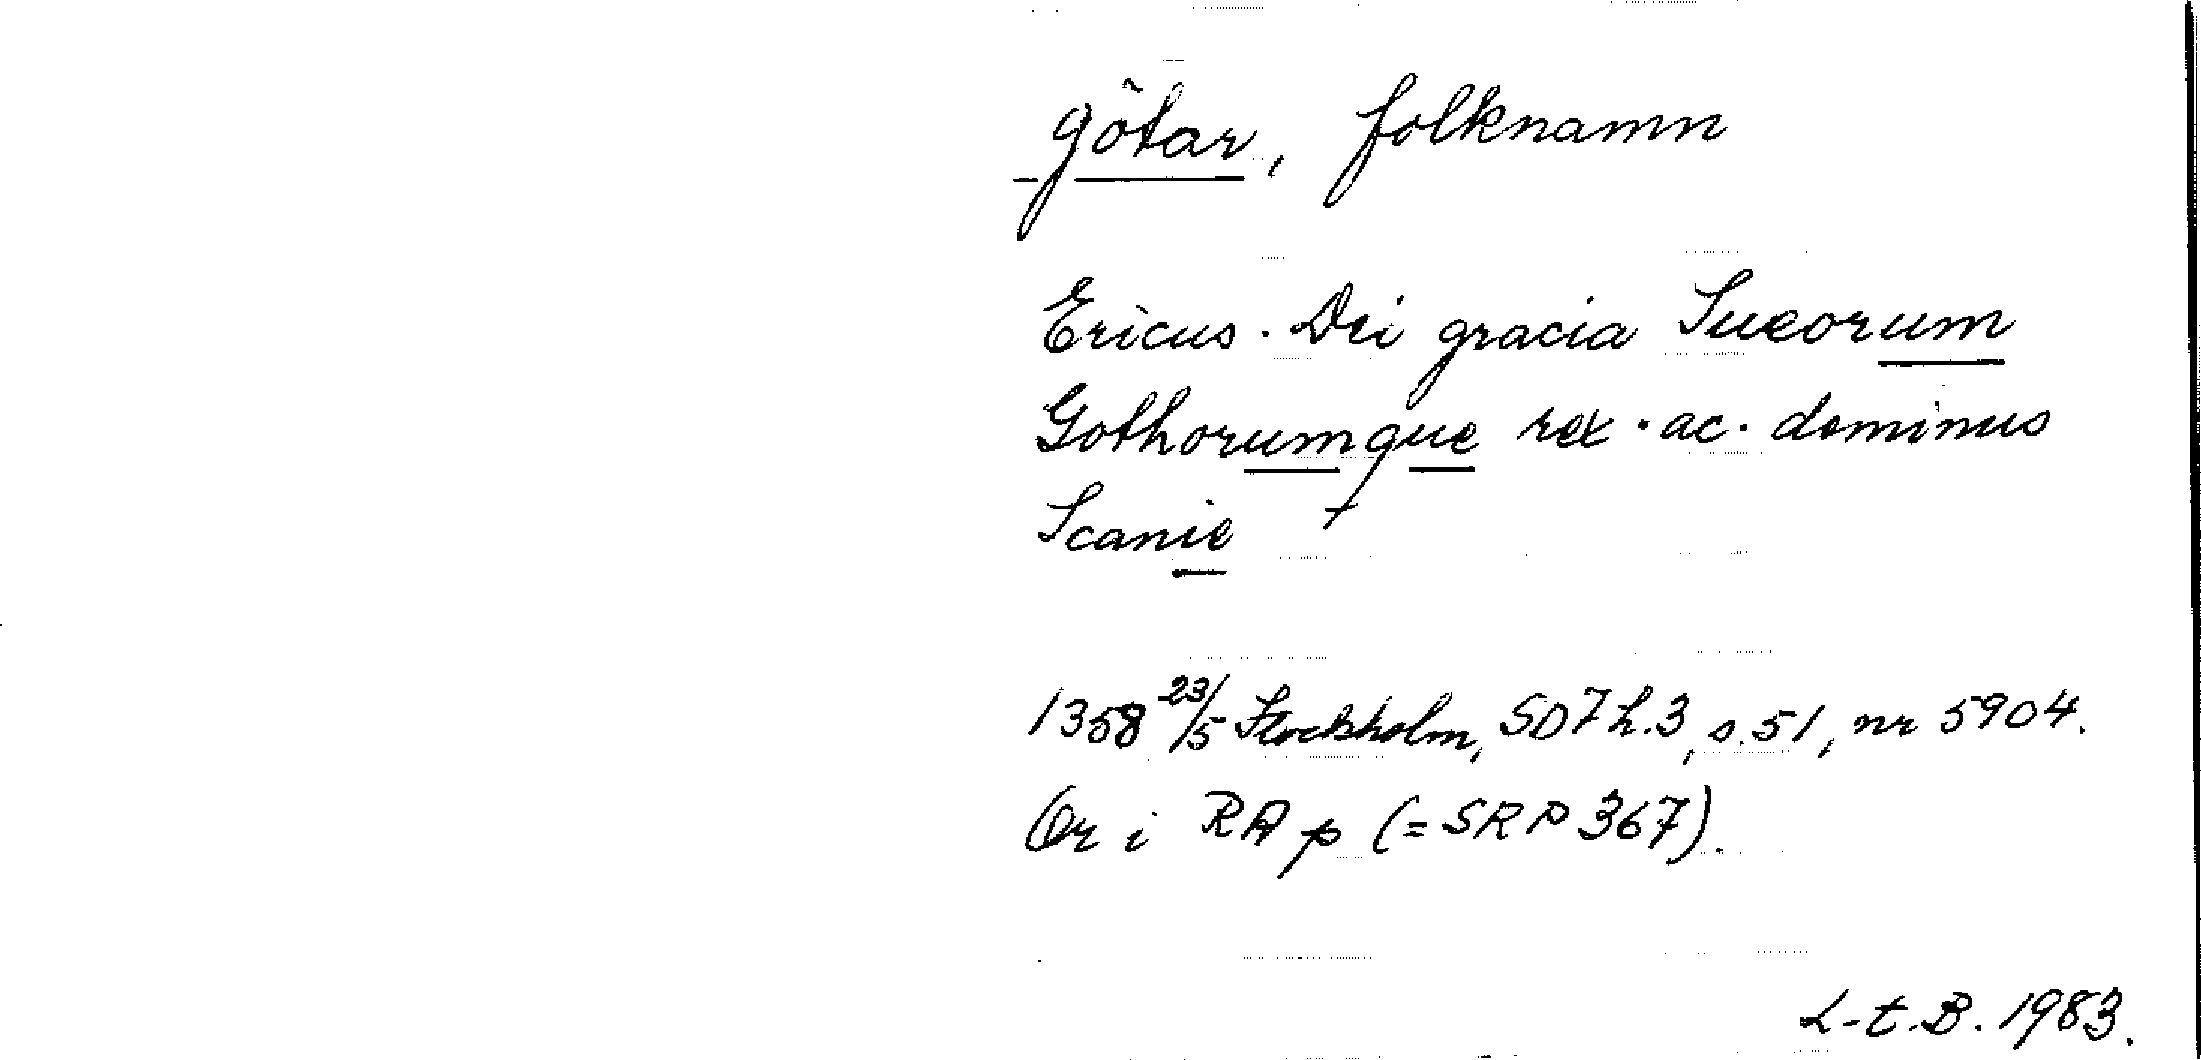 götar, folknamn
Ericus · Dei gracia Sueorum
Gothorumque rex · ac · dominus
Scanie
1358 23/5 Stockholm, SD7 h.3, s.51, nr 5904.
Or i RA p (= SRP 367).
L-t.B. 1983.